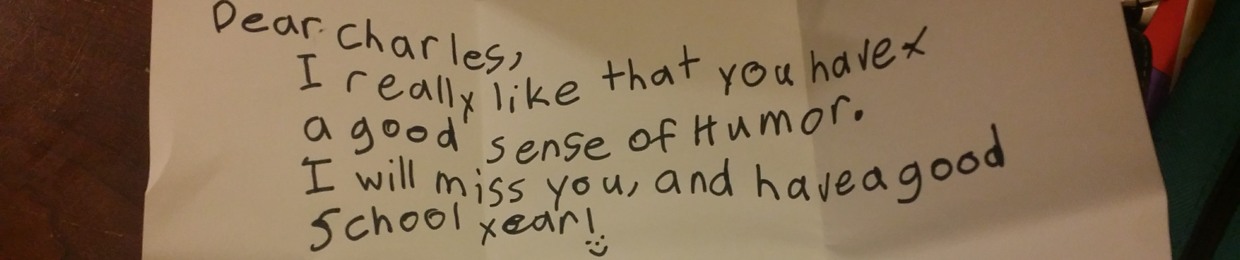 Dear Charles,
I really like that you have x
a good sense of Humor.
I will miss you, and have a good
School year!